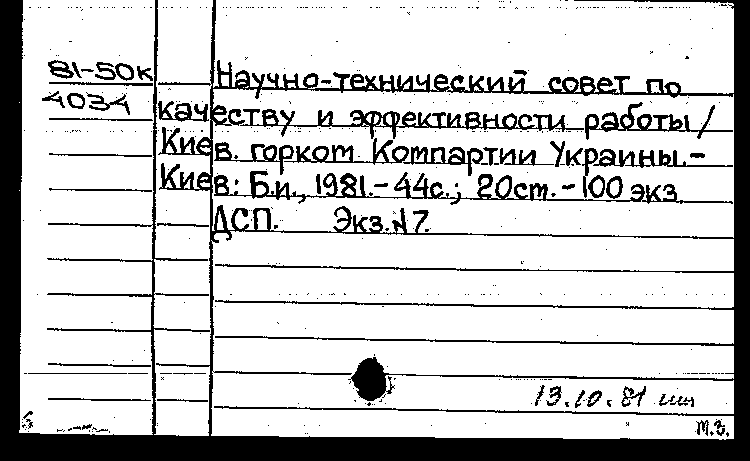 81-50к Научно-технический совет по
4034 качеству и эффективности работы/
Киев. горком Компартии Украины.-
Киев: Б.и., 1981.-44с.; 20см.-100 экз.
ДСП. Экз.№7.
13.10.81
м.в.